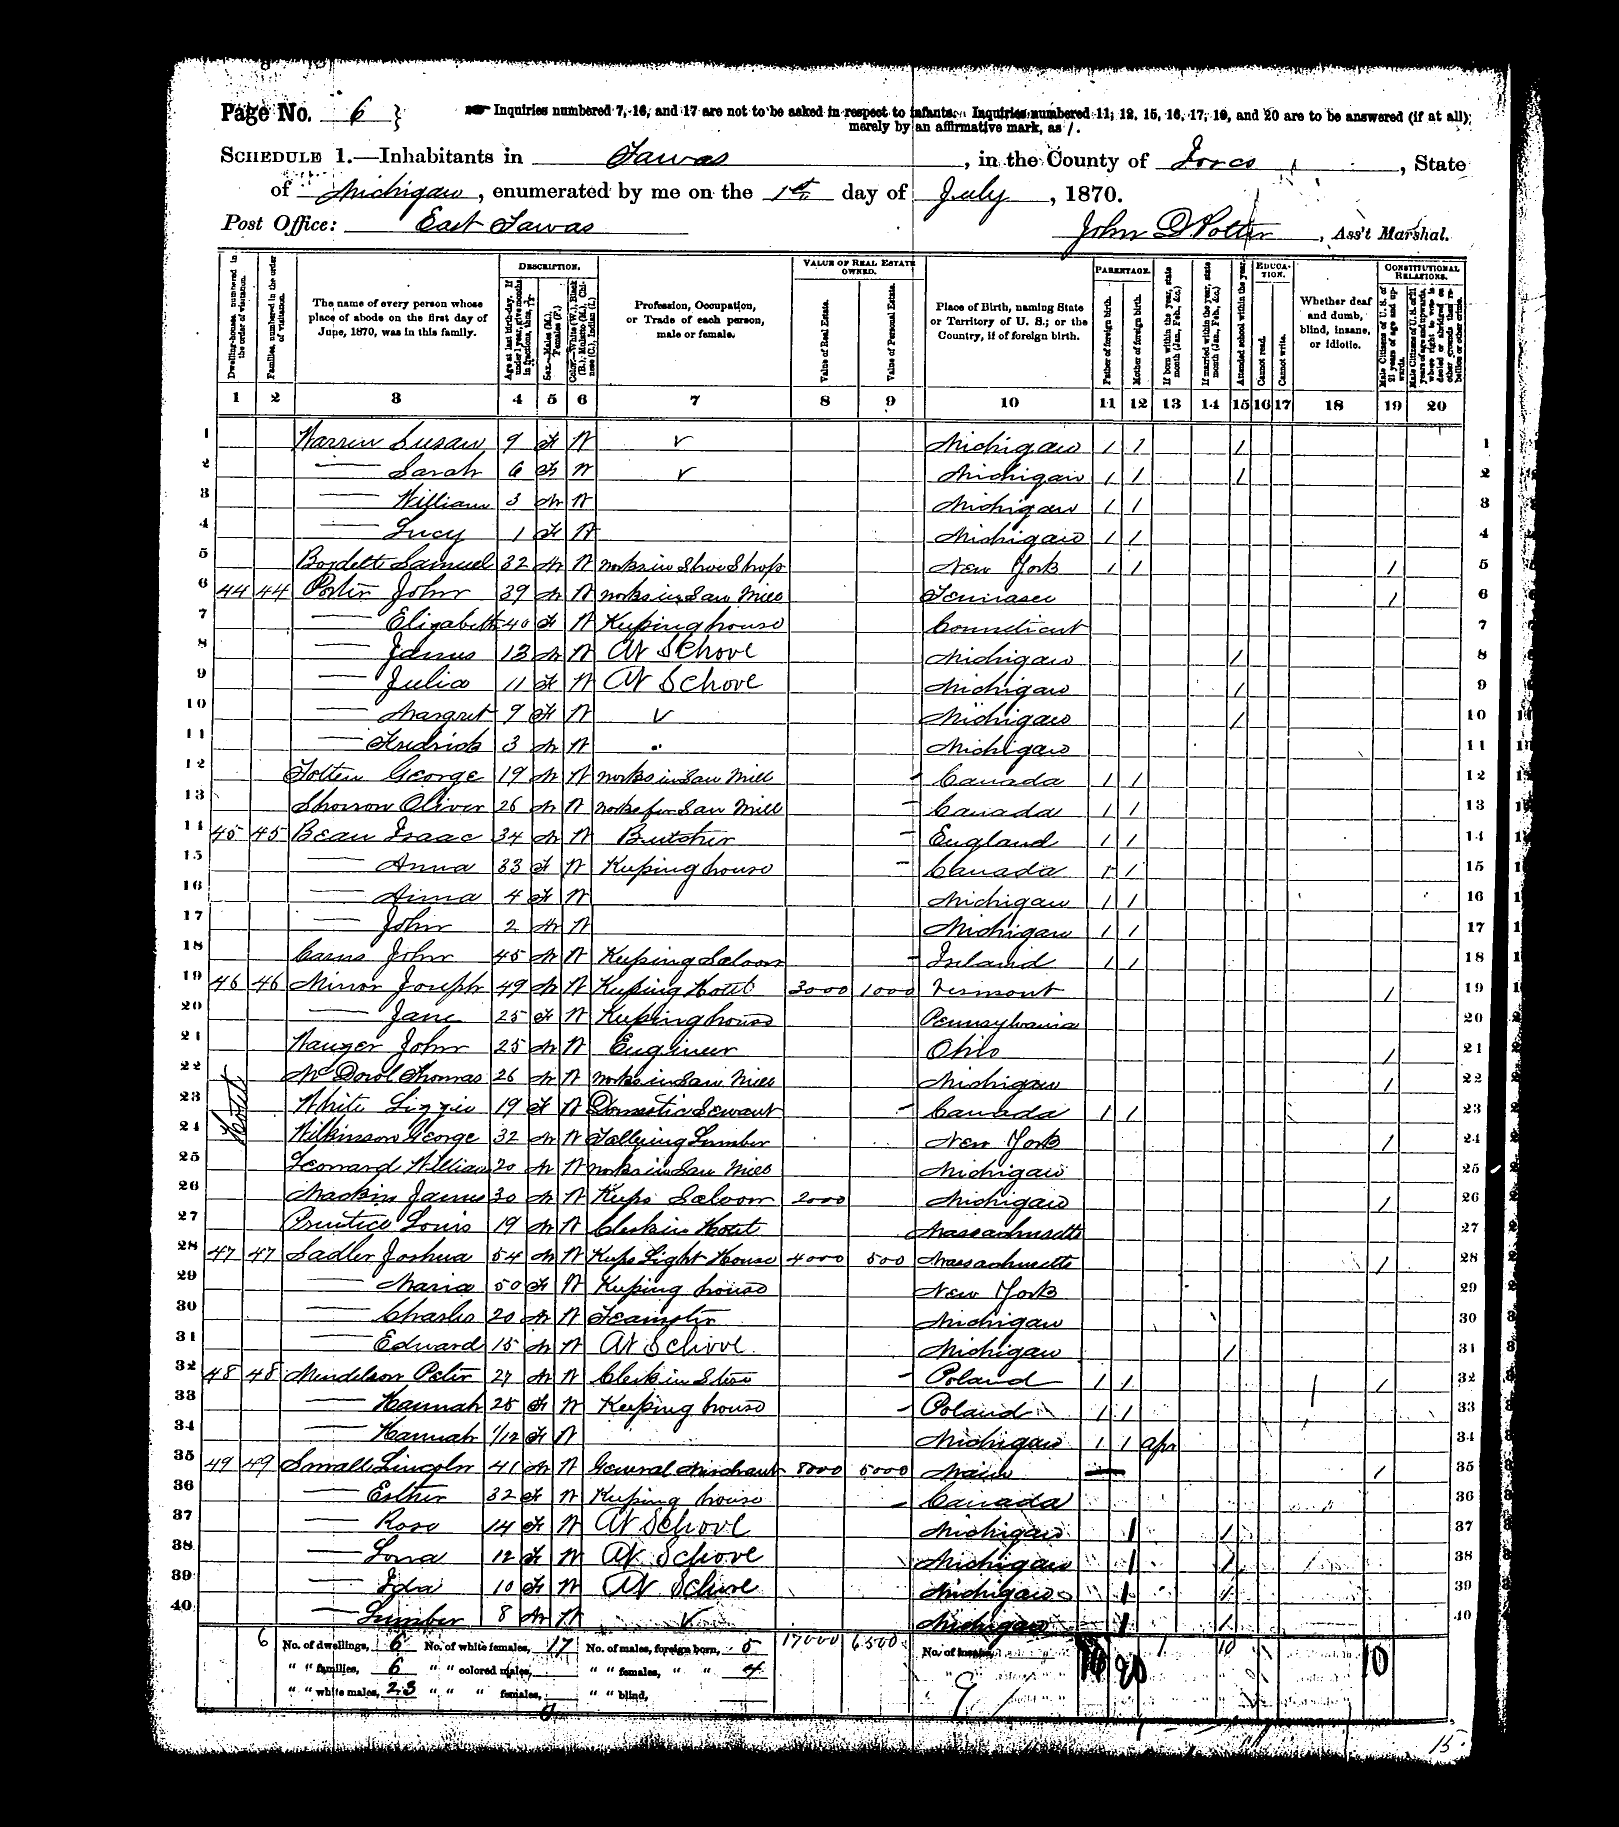 Page No. 6
Inquiries numbered 7, 16, and 17 are not to be asked in respect to infants. Inquiries numbered 11, 12, 15, 16, 17, 19, and 20 are to be answered (if at all)
merely by an affirmative mark, as /.
SCHEDULE 1.—Inhabitants in Tawas, in the County of Iosco, State
of Michigan, enumerated by me on the 1st day of July, 1870.
Post Office: East Tawas
John D Potter, Ass't Marshal.
Dwelling-houses, numbered in the order of visitation.
Families, numbered in the order of visitation.
The name of every person whose place of abode on the first day of June, 1870, was in this family.
DESCRIPTION.
Age at last birth-day. If under 1 year, give months in fractions, thus,
Sex.—Males (M.), Females (F.)
Color.—White (W.), Black (B.), Mulatto (M.), Chinese (C.), Indian (I.)
Profession, Occupation, or Trade of each person, male or female.
VALUE OF REAL ESTATE OWNED.
Value of Real Estate.
Value of Personal Estate.
Place of Birth, naming State or Territory of U. S.; or the Country, if of foreign birth.
PARENTAGE.
Father of foreign birth.
Mother of foreign birth.
If born within the year, state month (Jan., Feb., &c.)
If married within the year, state month (Jan., Feb., &c.)
Attended school within the year.
EDUCATION.
Cannot read.
Cannot write.
Whether deaf and dumb, blind, insane, or idiotic.
CONSTITUTIONAL RELATIONS.
Male Citizens of U. S. of 21 years of age and upwards.
Male Citizens of U. S. of 21 years of age and upwards, whose right to vote is denied or abridged on other grounds than rebellion or other crime.
1 2 3 4 5 6 7 8 9 10 11 12 13 14 15 16 17 18 19 20
1 Warren Susan 9 F W v Michigan / / / 1
2 — Sarah 6 F W v Michigan / / / 2
3 — William 3 M W Michigan / / 3
4 — Lucy 1 F W Michigan / / 4
5 Samuel 32 M W works in Shoe Shop New York / / / 5
6 44 44 Porter John 39 M W works in Saw Mill Tennasee / 6
7 — Elizabeth 40 F W Keeping house Conneticut 7
8 — James 13 M W At School Michigan / 8
9 — Julia 11 F W At School Michigan / 9
10 — Margret 9 F W v Michigan / 10
11 — Fredrick 3 M W Michigan 11
12 Totten George 19 M W works in Saw Mill Canada / / 12
13 Oliver 26 M W works in Saw Mill Canada / / 13
14 45 45 Bean Isaac 34 M W Butcher England / / 14
15 — Anna 33 F W Keeping house Canada / / 15
16 — 4 F W Michigan / / 16
17 — John 2 M W Michigan / / 17
18 Carns John 45 M W Keeping Saloon Ireland / / 18
19 46 46 Minor Joseph 49 M W Keeping Hotel 3000 1000 Vermont / 19
20 — Jane 25 F W Keeping house Pennsylvania 20
21 John 25 M W Engineer Ohio / 21
22 Thomas 26 M W works in Saw Mill Michigan / 22
Hotel
23 White Lizzie 19 F W Domestic Servant Canada / / 23
24 Wilkinson George 32 M W Tallying Lumber New York / 24
25 Leonard William 20 M W works in Saw Mill Michigan 25
26 James 30 M W Keeps Saloon 2000 Michigan / 26
27 Prentice Louis 19 M W Clerk in Hotel Massachusetts 27
28 47 47 Sadler Joshua 54 M W Keeps Light House 4000 500 Massachusetts / 28
29 — Maria 50 F W Keeping house New York 29
30 — Charles 20 M W Teamster Michigan 30
31 — Edward 15 M W At School Michigan / 31
32 48 48 Mendelson Peter 27 M W Clerk in Store Poland / / / 32
33 — Hannah 25 F W Keeping house Poland / / 33
34 — Hannah 1/12 F W Michigan / / Apr 34
35 49 49 Small Lincoln 41 M W General Merchant 8000 5000 Maine / 35
36 — Esther 32 F W Keeping house Canada 36
37 — Rose 14 F W At School Michigan / / 37
38 — 12 F W At School Michigan / / 38
39 — Ida 10 F W At School Michigan / / 39
40 — 8 M W v Michigan / / 40
6 No. of dwellings, 6 No. of white females, 17 No. of males, foreign born, 5 17000 6500 No. of insane, 1 10 10
" " families, 6 " " colored males, " " females, " " 4 20
" " white males, 23 " " " females, " " blind,
15